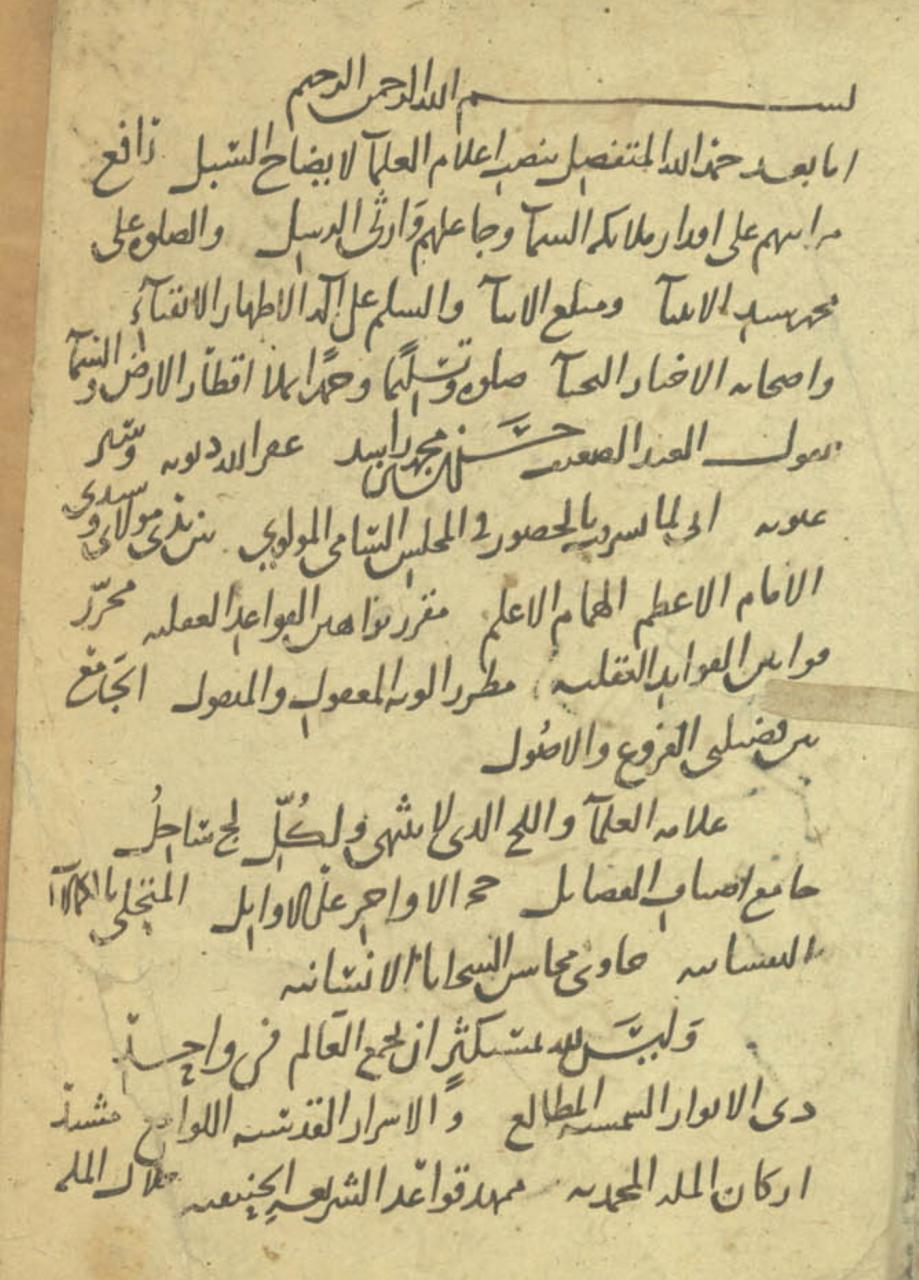 بسم الله الرحمن الرحيم
اما بعد حمد الله المتفضل بنصب اعلام العلمآ لايضاح السبل رافع
مراتبهم على اقدار ملائكه السمآ وجاعلهم وَارثى الرسل والصلوه على
محمد سيد الانبيآ ومبلغ الانبآ والسلم على آله الاطهار الاتقيآء
واصحابه الاخيار النجبآ صلوه وتسليمًا وحمدًا يملا اقطار الارض والسمآ
يقول العبد الضعيف حسن بن محمد بن راشد غفر الله ذنوبه وستر
عيوبه انى لما تشرفت بالحضور فى المجلس السَّامى المولوي بين يدى مولاى وسيدى
الامام الاعظم الهمام الاعلم مقرر براهين القواعد العقليه محرّر
قوانين الفوايد النقليه مطرز الويه المعقول والمنقول الجَامع
بين فضيلتى الفروع والاصُول
علامه العلمآ واللج الذى لا ينتهى ولكُلّ لج سَاحلُ
جامع اصناف الفضايل حجه الاواخِر على الاوايل المتحلى بالكمالات
النفسانيه حاوى محاسن السجايا الانسَانيه
وَليسَ لله بمستكثرٍ ان يجمع العَالم فى واحِدِ
ذى الانوار الشمسيه المطالع والاسرار القدسيه اللوامع مشيد
اركان المله المحمديه ممهد قواعد الشريعه الحنيفيه جلال المله